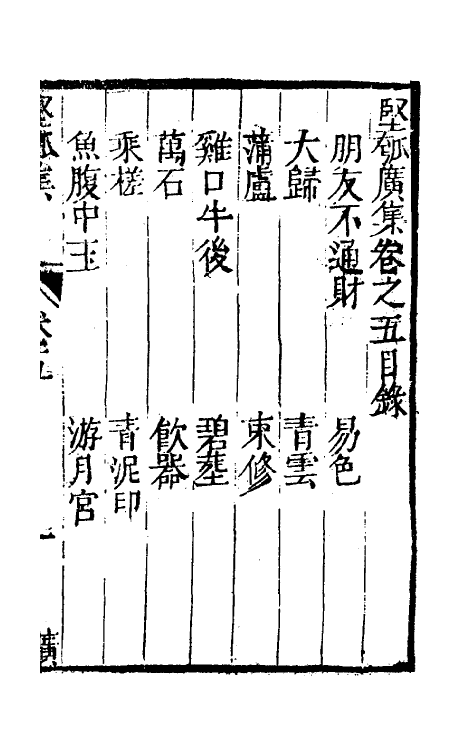 堅瓠廣集卷之五目錄
朋友不通財 易色
大歸 青雲
蒲盧 束修
雞口牛後 碧蕐
萬石 飲器
乘槎 青泥印
魚腹中玉 游月宮
堅瓠集 廣